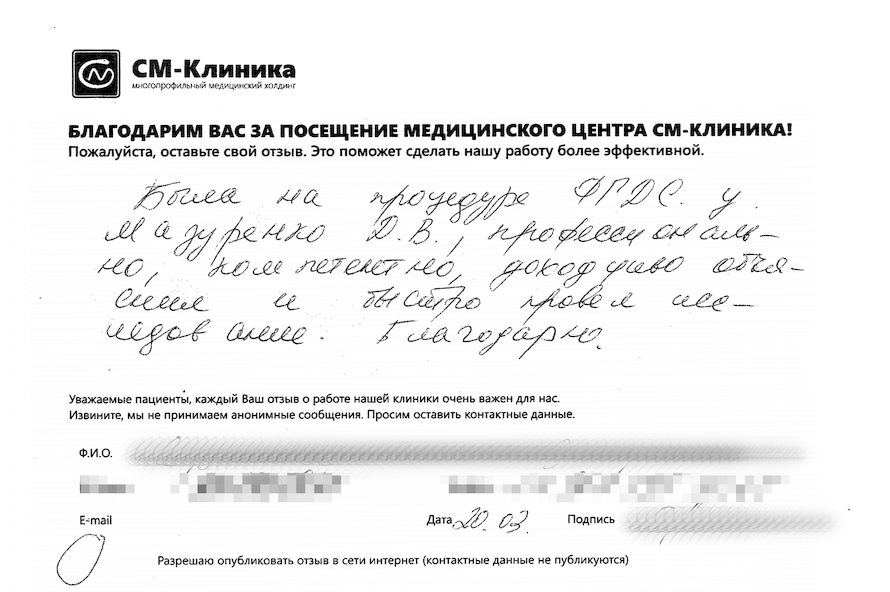 СМ-Клиника
многопрофильный медицинский холдинг
БЛАГОДАРИМ ВАС ЗА ПОСЕЩЕНИЕ МЕДИЦИНСКОГО ЦЕНТРА СМ-КЛИНИКА!
Пожалуйста, оставьте свой отзыв. Это поможет сделать нашу работу более эффективной.
Была на процедуре ФГДС у
Мазуренко Д.В., профессиональ-
но, компетентно, доходчиво объя-
снил и быстро провел исс-
ледование. Благодарю.
Уважаемые пациенты, каждый Ваш отзыв о работе нашей клиники очень важен для нас.
Извините, мы не принимаем анонимные сообщения. Просим оставить контактные данные.
Ф.И.О.
E-mail Дата 20.03. Подпись
Разрешаю опубликовать отзыв в сети интернет (контактные данные не публикуются)